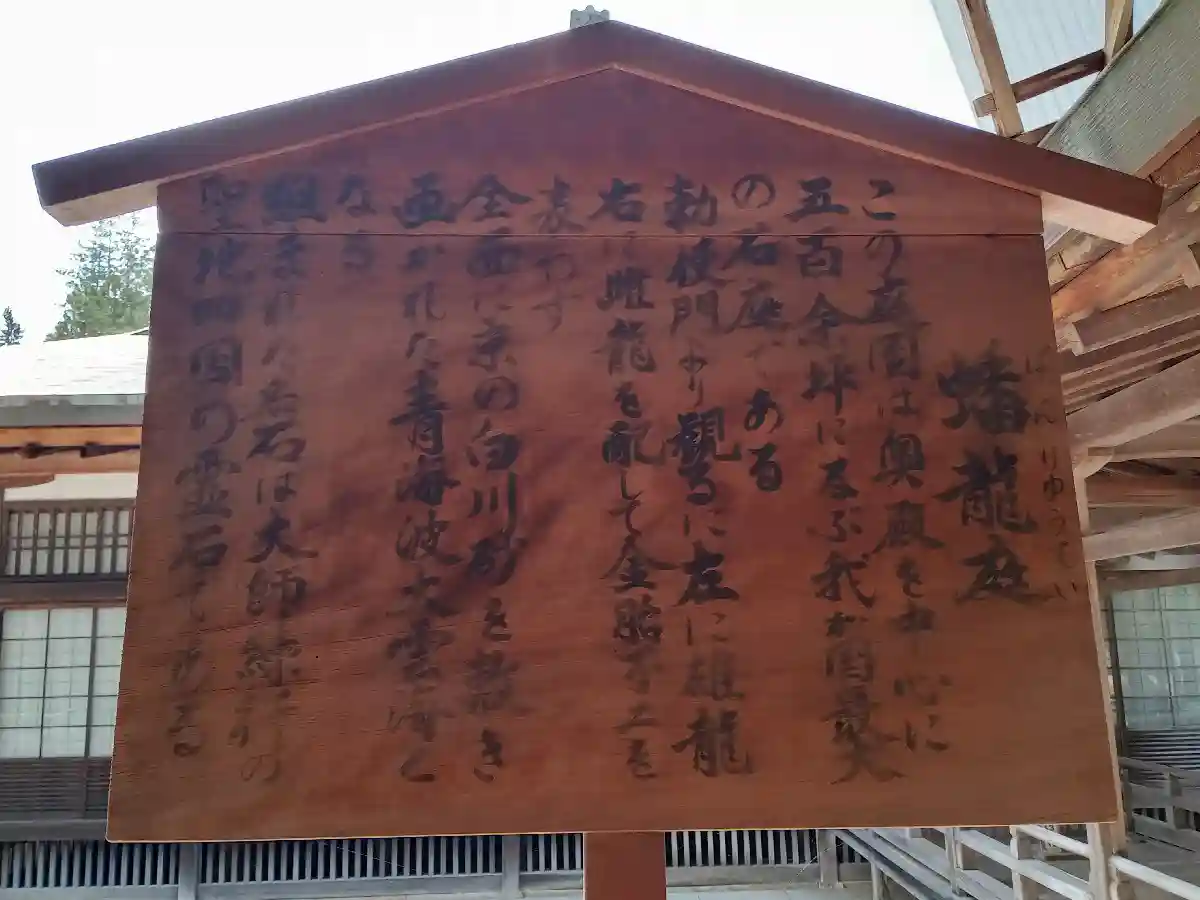 蟠龍庭
ばんりゅうてい
この庭園は奥殿を中心に
五百余坪に及ぶ我が国最大
の石庭である
勅使門より観るに左に雄龍
右に雌龍を配して金胎不二を
表わす
全面に京の白川砂を敷き
画かれた青海波大雲海と
なる
組まれた岩石は大師御誕生の
聖地四国の霊石である